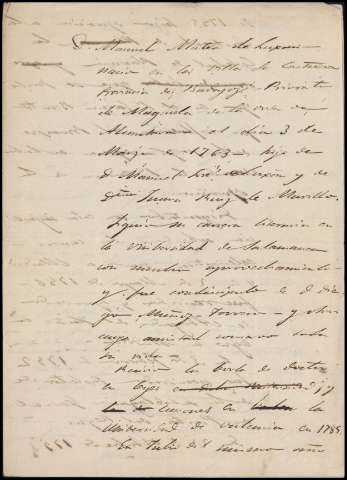 D. Manuel Mateo de Luxan
nacio en la villa de Castuera
Provincia de Badajoz, Priorato
de Magacela de la orden de
Alcantara el día 3 de
Marzo de 1763, hijo de
D. Manuel de Luxán y de
Doña Juana Ruiz de Murillo.
Siguio su carrera literaria en
la Universidad de Salamanca
con mucho aprovechamiento
y fue condiscipulo de D. Diego
Muñoz Torrero y otros
cuya amistad conservo toda
su vida
Recivio la borla de doctor
en leyes y
canones en la
Universidad de Valencia en 1784
En Julio del mismo año